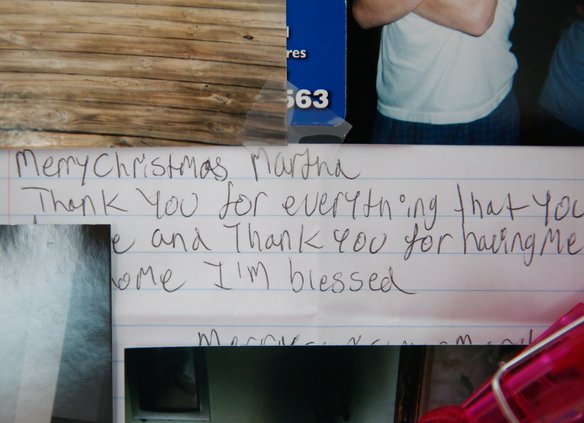 res
563
Merry Christmas Martha
Thank You for everything that You
e and Thank You for having Me
ome I'm blessed
Merry